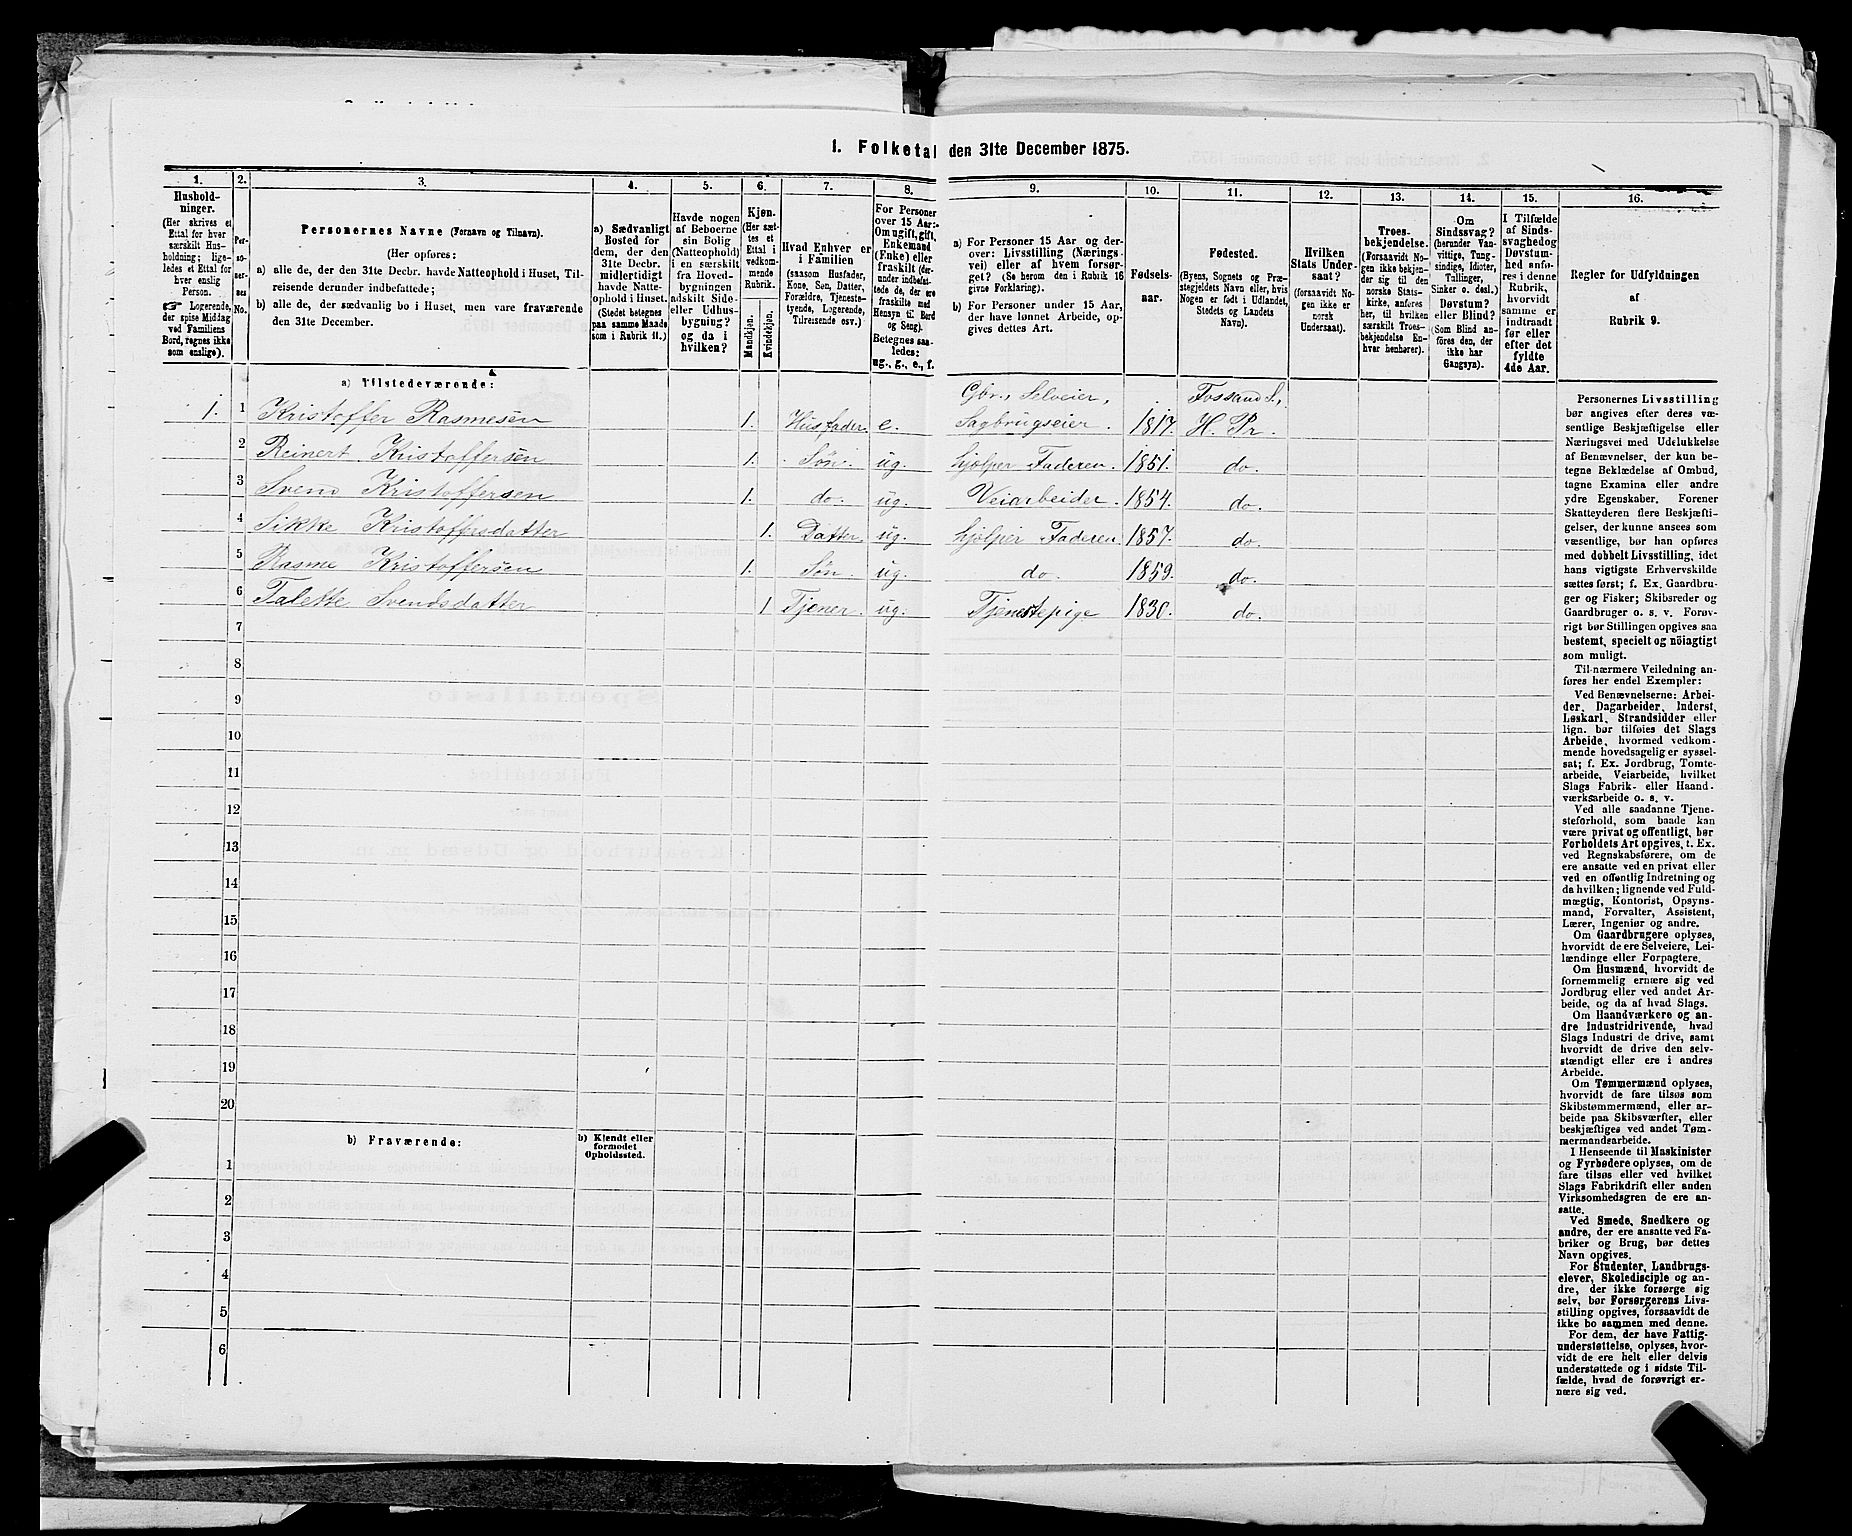 1. Folketal den 31te December 1875.
1. 2. 3. 4. 5. 6. 7. 8. 9. 10. 11. 12. 13. 14. 15. 16.
Hushold-
ninger.
(Her skrives et
Ettal for hver
særskilt Hus-
holdning; lige-
ledes et Ettal for
hver enslig
Person.
☞ Logerende,
der spise Middag
ved Familiens
Bord, regnes ikke
som enslige).
Per-
so-
ner-
nes
No.
Personernes Navne (Fornavn og Tilnavn).
(Her opføres:
a) alle de, der den 31te Decbr. havde Natteophold i Huset, Til-
reisende derunder indbefattede;
b) alle de, der sædvanlig bo i Huset, men vare fraværende
den 31te December.
a) Sædvanligt
Bosted for
dem, der den
31te Decbr.
midlertidigt
havde Natte-
ophold i Huset.
(Stedet betegnes
paa samme Maade
som i Rubrik 11.)
Havde nogen
af Beboerne
sin Bolig
(Natteophold)
i en særskilt
fra Hoved-
bygningen
adskilt Side-
eller Udhus-
bygning?
og da i
hvilken?
Kjøn.
(Her sæt-
tes et
Ettal i
vedkom-
mende
Rubrik.
Mandkjøn.
Kvindekjøn.
Hvad Enhver er
i Familien
(saasom Husfader,
Kone, Søn, Datter,
Forældre, Tjeneste-
tyende, Logerende,
Tilreisende osv.)
For Personer
over 15 Aar:
Om ugift, gift,
Enkemand
(Enke) eller
fraskilt (der-
under indbefat-
tede de, der ere
fraskilte med
Hensyn til Bord
og Seng).
Betegnes saa-
ledes:
ug., g., e., f.
a) For Personer 15 Aar og der-
over: Livsstilling (Nærings-
vei) eller af hvem forsør-
get? (Se herom den i Rubrik 16
givne Forklaring).
b) For Personer under 15 Aar,
der have lønnet Arbeide, op-
gives dettes Art.
Fødsels-
aar.
Fødested.
(Byens, Sognets og Præ-
stegjeldets Navn eller, hvis
Nogen er født i Udlandet,
Stedets og Landets
Navn).
Hvilken
Stats Under-
saat?
(forsaavidt No-
gen ikke er
norsk
Undersaat).
Troes-
bekjendelse.
(Forsaavidt No-
gen ikke bekjen-
der sig til den
norske Stats-
kirke, anføres
her, til hvilken
særskilt Troes-
bekjendelse En-
hver henhører).
Om
Sindssvag?
(herunder Van-
vittige, Tung-
sindige, Idioter,
Tullinger,
Sinker o. desl.)
Døvstum?
eller Blind?
(Som Blind an-
føres den, der
ikke har
Gangsyn).
I Tilfælde
af Sinds-
svaghed og
Døvstum-
hed anfø-
res i denne
Rubrik,
hvorvidt
samme er
indtraadt
før eller
efter det
fyldte
4de Aar.
Regler for Udfyldningen
af
Rubrik 9.
a) Tilstedeværende:
1. 1 Kristoffer Rasmesen 1. Husfader. e. Gbr., Selveier, Sagbrugseier. 1817. Fossand S., H. Pr.
2 Reinert Kristoffersen 1. Søn. ug. hjælper Faderen. 1851. do.
3 Svend Kristoffersen 1. do. ug. Veiarbeider. 1854. do.
4 Sikke Kristoffersdatter 1. Datter. ug. hjælper Faderen. 1857. do.
5 Rasme Kristoffersen 1. Søn. ug. do. 1859. do.
6 Talette Svendsdatter 1 Tjener. ug. Tjenestepige 1830. do.
7
8
9
10
11
12
13
14
15
16
17
18
19
20
b) Fraværende:
b) Kjendt eller
formodet
Opholdssted.
1
2
3
4
5
6
Personernes Livsstilling
bør angives efter deres væ-
sentlige Beskjæftigelse eller
Næringsvei med Udelukkelse
af Benævnelser, der kun be-
tegne Beklædelse af Ombud,
tagne Examina eller andre
ydre Egenskaber. Forener
Skatteyderen flere Beskjæfti-
gelser, der kunne ansees som
væsentlige, bør han opføres
med dobbelt Livsstilling, idet
hans vigtigste Erhvervskilde
sættes først; f. Ex. Gaardbru-
ger og Fisker; Skibsreder og
Gaardbruger o. s. v. Forøv-
rigt bør Stillingen opgives saa
bestemt, specielt og nöiagtigt
som muligt.
Til nærmere Veiledning an-
føres her endel Exempler:
Ved Benævnelserne: Arbei-
der, Dagarbeider, Inderst,
Løskarl, Strandsidder eller
lign. bør tilføies det Slags
Arbeide, hvormed vedkom-
mende hovedsagelig er syssel-
sat; f. Ex. Jordbrug, Tomte-
arbeide, Veiarbeide, hvilket
Slags Fabrik- eller Haand-
værksarbeide o. s. v.
Ved alle saadanne Tjene-
steforhold, som baade kan
være privat og offentligt, bør
Forholdets Art opgives, t. Ex.
ved Regnskabsførere, om de
ere ansatte ved en privat eller
ved en offentlig Indretning og
da hvilken; lignende ved Fuld-
mægtig, Kontorist, Opsyns-
mand, Forvalter, Assistent,
Lærer, Ingeniør og andre.
Om Gaardbrugere oplyses,
hvorvidt de ere Selveiere, Lei-
lændinge eller Forpagtere.
Om Husmænd, hvorvidt de
fornemmelig ernære sig ved
Jordbrug eller ved andet Ar-
beide, og da af hvad Slags.
Om Haandværkere og an-
dre Industridrivende, hvad
Slags Industri de drive, samt
hvorvidt de drive den selv-
stændigt eller ere i andres
Arbeide.
Om Tømmermænd oplyses,
hvorvidt de fare tilsøs som
Skibstømmermænd, eller ar-
beide paa Skibsværfter, eller
beskjæftiges ved andet Tøm-
mermandsarbeide.
I Henseende til Maskinister
og Fyrbødere oplyses, om de
fare tilsøs eller ved hvilket
Slags Fabrikdrift eller anden
Virksomhedsgren de ere an-
satte.
Ved Smede, Snedkere og
andre, der ere ansatte ved Fa-
briker og Brug, bør dettes
Navn opgives.
For Studenter, Landbrugs-
elever, Skoledisciple og an-
dre, der ikke forsørge sig
selv, bør Forsørgerens Livs-
stilling opgives, forsaavidt de
ikke bo sammen med denne.
For dem, der have Fattig-
understøttelse, oplyses, hvor-
vidt de ere helt eller delvis
understøttede og i sidste Til-
fælde, hvad de forøvrigt er-
nære sig ved.